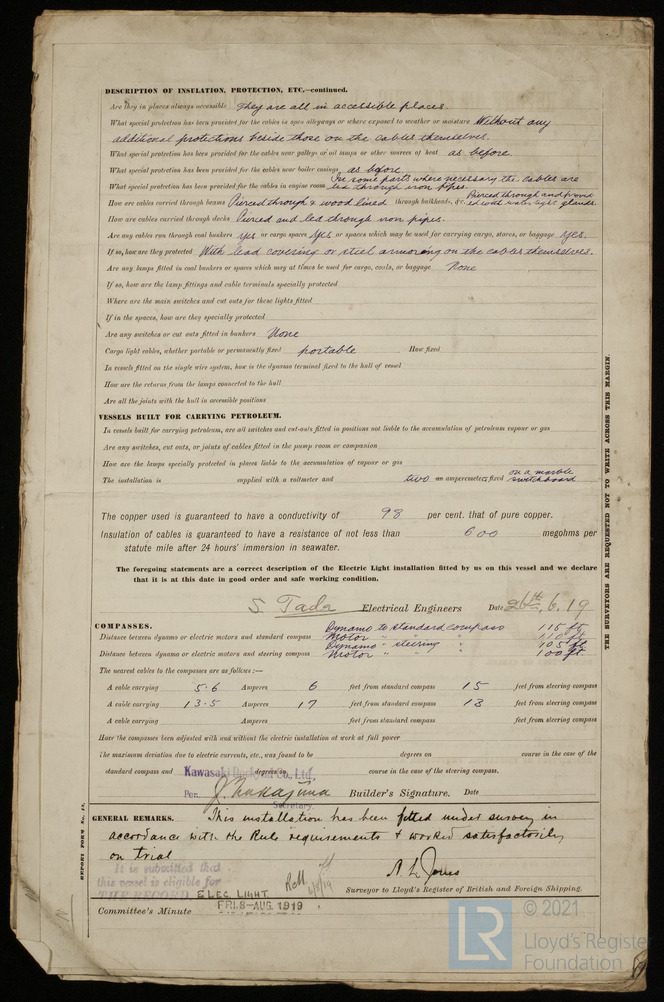 DESCRIPTION OF INSULATION, PROTECTION, ETC.—continued.
Are they in places always accessible They are all in accessible places.
What special protection has been provided for the cables in open alleyways or where exposed to weather or moisture Without any
additional protections beside those on the cables themselves.
What special protection has been provided for the cables near galleys or oil lamps or other sources of heat as before.
What special protection has been provided for the cables near boiler casings as before
In some parts where necessary the cables are
What special protection has been provided for the cables in engine room led through iron pipes.
Pierced through and provid
How are cables carried through beams Pierced through & wood lined through bulkheads, &c. ed with water tight glands.
How are cables carried through decks Pierced and led through iron pipes.
Are any cables run through coal bunkers yes or cargo spaces yes or spaces which may be used for carrying cargo, stores, or baggage yes.
If so, how are they protected With lead covering or steel armoring on the cables themselves.
Are any lamps fitted in coal bunkers or spaces which may at times be used for cargo, coals, or baggage None
If so, how are the lamp fittings and cable terminals specially protected
Where are the main switches and cut outs for these lights fitted
If in the spaces, how are they specially protected
Are any switches or cut outs fitted in bunkers None
Cargo light cables, whether portable or permanently fixed portable How fixed
In vessels fitted on the single wire system, how is the dynamo terminal fixed to the hull of vessel
How are the returns from the lamps connected to the hull
Are all the joints with the hull in accessible positions
VESSELS BUILT FOR CARRYING PETROLEUM.
In vessels built for carrying petroleum, are all switches and cut-outs fitted in positions not liable to the accumulation of petroleum vapour or gas
Are any switches, cut outs, or joints of cables fitted in the pump room or companion
How are the lamps specially protected in places liable to the accumulation of vapour or gas
on a marble
The installation is supplied with a voltmeter and two an amperemeters fixed switchboard
The copper used is guaranteed to have a conductivity of 98 per cent. that of pure copper.
Insulation of cables is guaranteed to have a resistance of not less than 600 megohms per
statute mile after 24 hours' immersion in seawater.
The foregoing statements are a correct description of the Electric Light installation fitted by us on this vessel and we declare
that it is at this date in good order and safe working condition.
S. Tada Electrical Engineers Date 26th, 6, 19
COMPASSES.
Dynamo to standard compass 115 ft
Distance between dynamo or electric motors and standard compass Motor " " " 110 ft
Dynamo " steering " 105 ft
Distance between dynamo or electric motors and steering compass Motor " " " 100 ft
The nearest cables to the compasses are as follows:—
A cable carrying 5.6 Amperes 6 feet from standard compass 15 feet from steering compass
A cable carrying 13.5 Amperes 17 feet from standard compass 18 feet from steering compass
A cable carrying Amperes feet from standard compass feet from steering compass
Have the compasses been adjusted with and without the electric installation at work at full power
The maximum deviation due to electric currents, etc., was found to be degrees on course in the case of the
standard compass and degrees on course in the case of the steering compass.
Kawasaki Dockyard Co., Ltd.
Per. J. Nakajima Builder's Signature. Date
Secretary.
GENERAL REMARKS. This installation has been fitted under survey in
accordance with the Rule requirements & worked satisfactorily
on trial
It is submitted that
this vessel is eligible for
THE RECORD ELEC. LIGHT
A. L. Jones
Surveyor to Lloyd's Register of British and Foreign Shipping.
Committee's Minute FRI. 8-AUG. 1919
REPORT FORM No. 13.
THE SURVEYORS ARE REQUESTED NOT TO WRITE ACROSS THIS MARGIN.
LR
© 2021
Lloyd's Register
Foundation